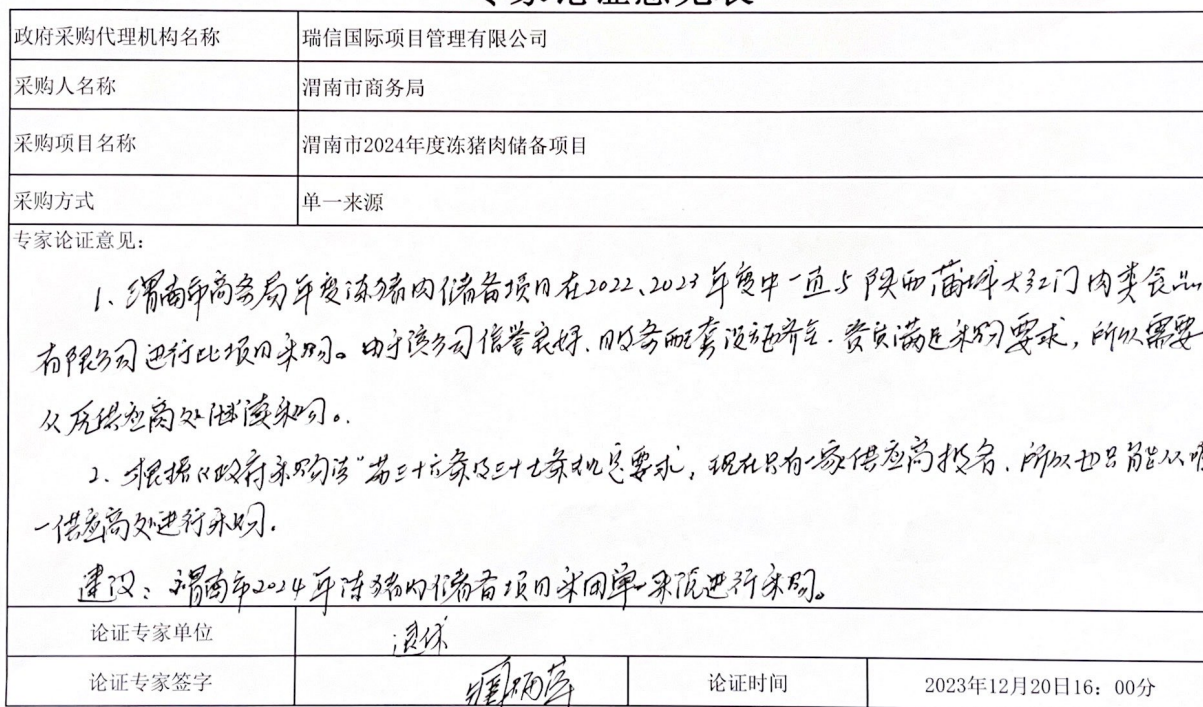 专家论证意见表
政府采购代理机构名称 瑞信国际项目管理有限公司
采购人名称 渭南市商务局
采购项目名称 渭南市2024年度冻猪肉储备项目
采购方式 单一来源
专家论证意见：
1、渭南市商务局年度冻猪肉储备项目在2022、2023年度中一直与陕西蒲城大红门肉类食品
有限公司进行此项目采购。由于该公司信誉良好、服务配套设施齐全、资质满足采购要求，所以需要
从原供应商处继续采购。
2、根据《政府采购法"第三十六条及三十七条规定要求，现在只有一家供应商报名，所以也只能从唯
一供应商处进行采购.
建议：渭南市2024年冻猪肉储备项目采用单一来源进行采购。
论证专家单位 退休
论证专家签字 论证时间 2023年12月20日16：00分